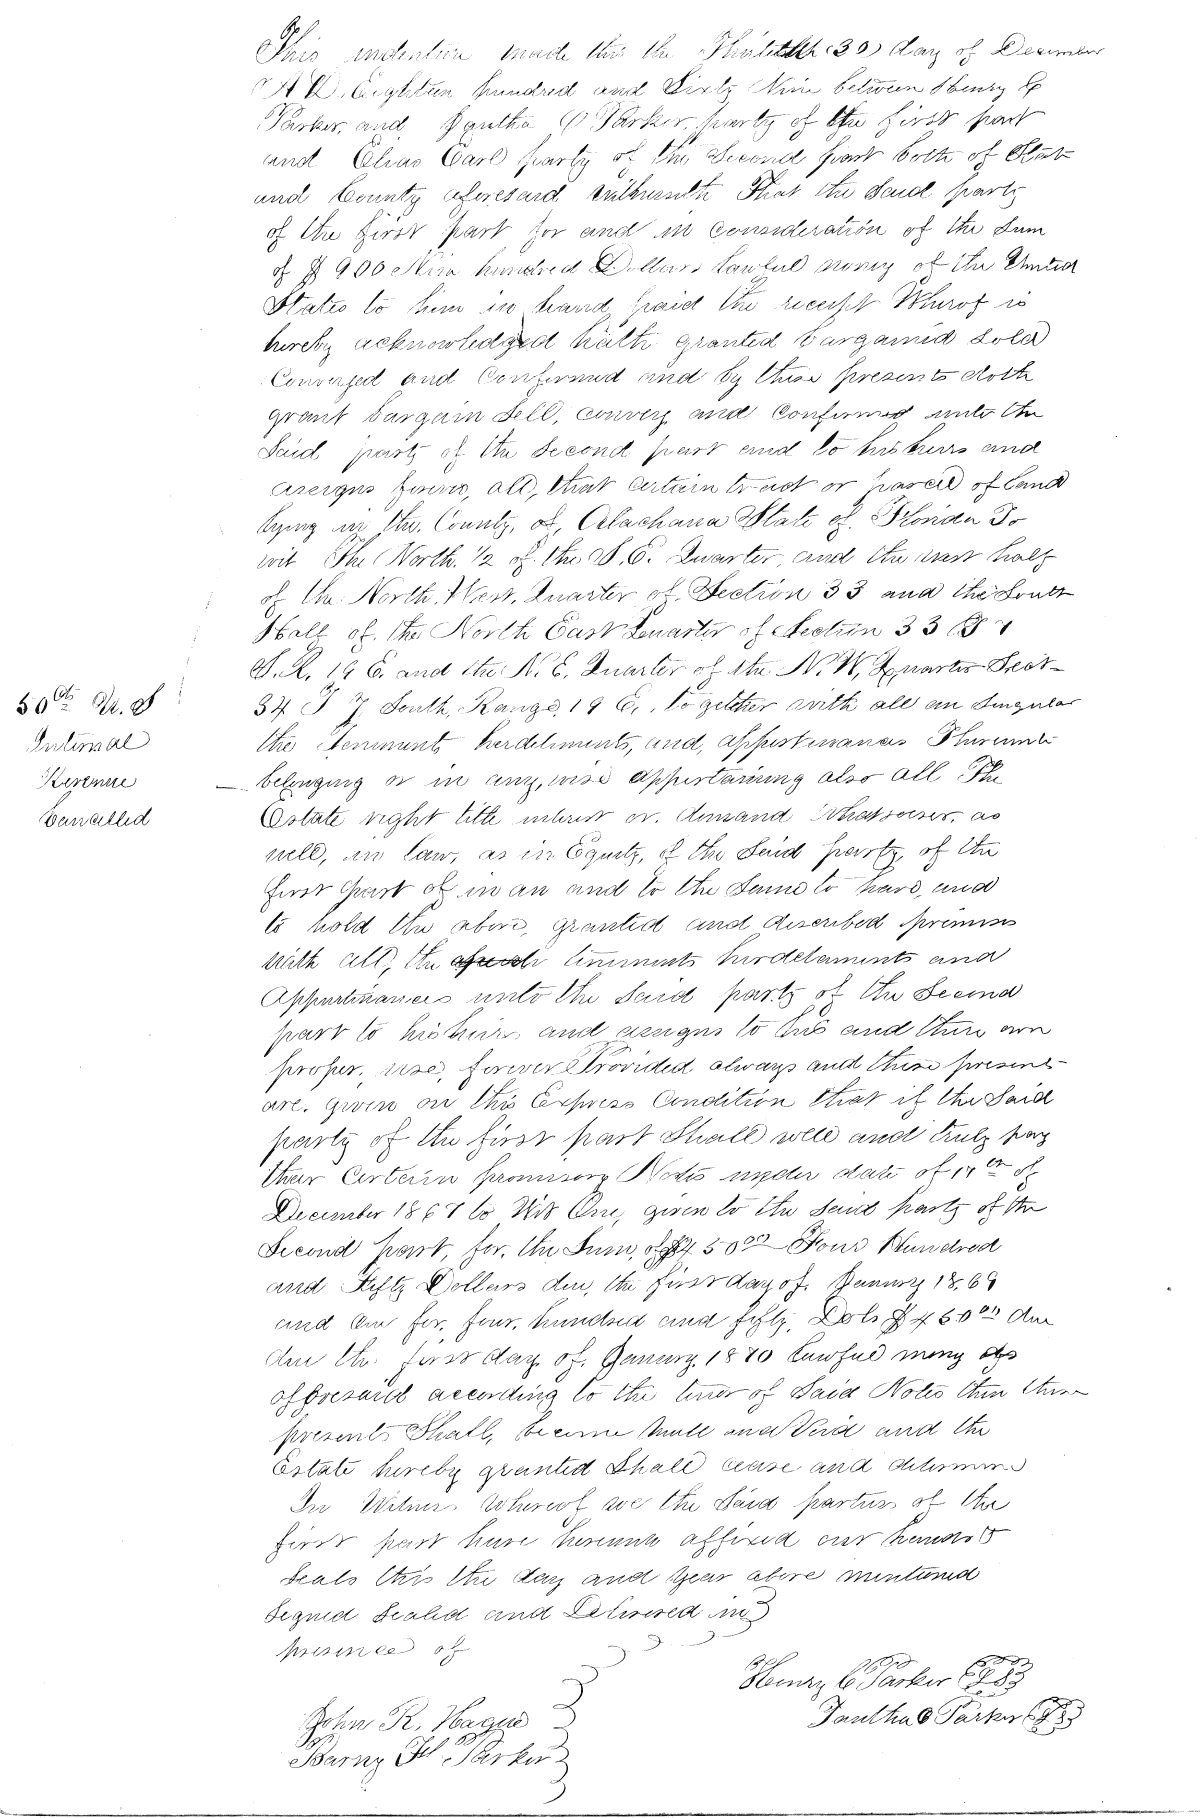 This indenture made this the Thirtieth (30) day of December
A.D. Eighteen hundred and Sixty Nine between Henry C
Parker, and Iantha O Parker, party of the first part
and Elias Earl party of the Second part both of State
and County aforesaid Witnesseth That the Said party
of the first part for and in consideration of the Sum
of $ 900 Nine hundred Dollars lawful money of the United
States to him in hand paid the receipt Wherof is
hereby acknowledged hath granted bargained Sold
Conveyed and Confirmed and by these presents doth
grant bargain Sell, convey and Confirmed unto the
Said party of the Second part and to his heirs and
assigns forever, all, that certain tract or parcel of land
lying in the County, of, Alachaua State of Florida To
wit The North 1/2 of the S.E. Quarter, and the east half
of the North West, Quarter of Section 33 and the South
Half of the North East Quarter of Section 33 T 7
S.R. 19 E. and the N.E. Quarter of the N.W, Quarter Sect-
34 T 7 South, Range, 19 E, together with all an Singular
the Tenments herdetiments, and, appertinances Thereunto
belonging or in any, wise appertaining also all The
Estate right title interest or demand Whatsoever, as
well, in law, as in Equity, of the Said party, of the
first part of in an and to the Same to have, and
to hold the above, granted and described premises
with all, the tinments herdetaments and
Appurtinances unto the Said party of the Second
part to his heirs and assigns to his and there own
proper, use, forever Provided always and these present-
are given on this Express Condition that if the Said
party of the first part Shall well and truly pay
their Certain promisory Notes under date of of
December 1867 to Wit One, given to the Said party of the
Second part, for, the Sum, of $450 00 Four Hundred
and Fifty Dollars due, the first day of January 1869
and One for, four, hundred and fifty, Dols $450 00 due
due the first day of, January, 1870 lawful mony as
afforesaid according to the tenor of Said Notes then these
presents Shall, become Null and Void and the
Estate hereby granted Shall cease and determine
In Witness Whereof we the Said parties of the
first part have hereunto affixed our hands &
Seals this the day and year above mentioned
Signed Sealed and Delivered in
presence of
Henry C Parker
Iantha O Parker
John R. Hague
Barny H Parker
50 cts U.S
Internal
Revenue
Cancelled